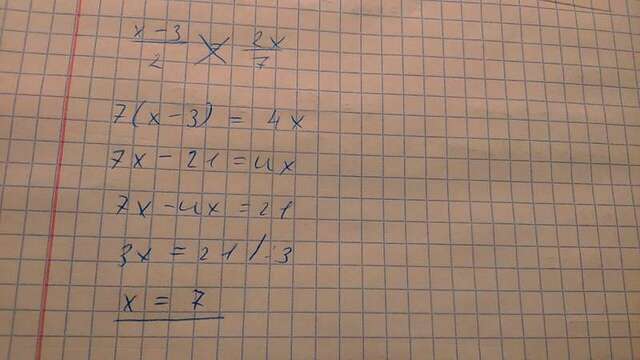 x-3/2 = 2x/7
7(x-3) = 4x
7x - 21 = 4x
7x - 4x = 21
3x = 21 /:3
x = 7